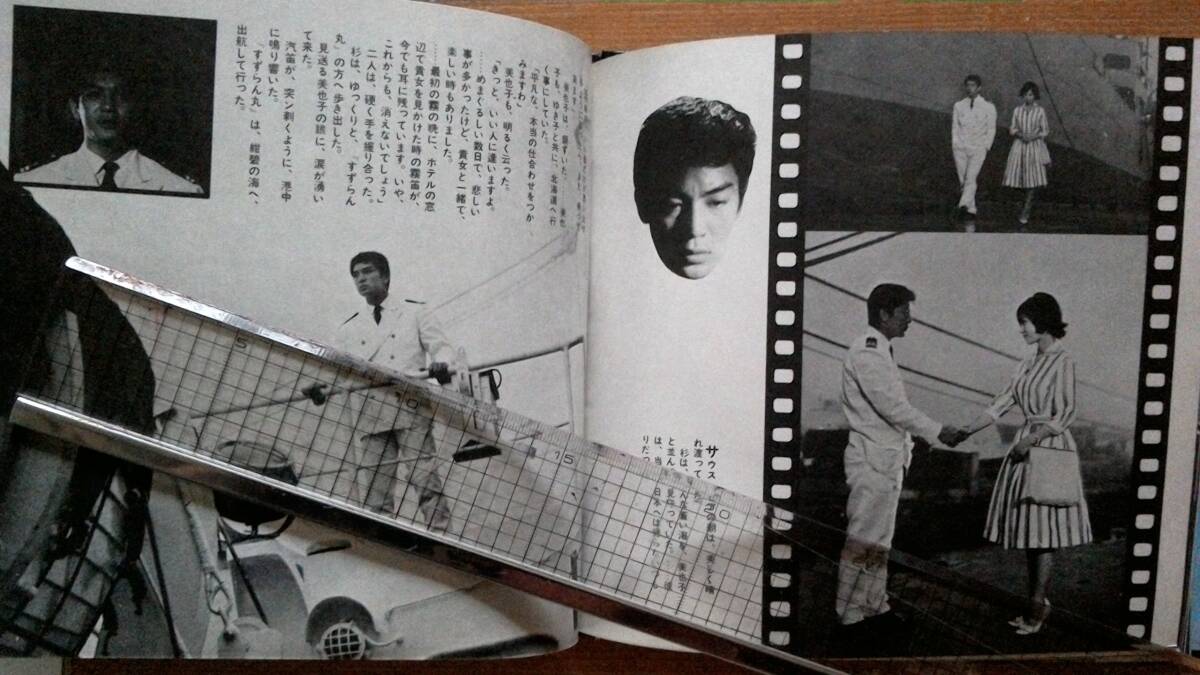 サウス
れ渡って
杉は、
と並ん
は、当
りだっ
美也子は、頷ずいた。
子も、ゆき子と共に、北海道へ行
く事にしていた。
「平凡な、本当の仕合わせをつか
みますわ」
美也子も、明るく云った。
「きっと、いい人に逢いますよ。
……めまぐるしい数日で、悲しい
事が多かったけど、貴女と一緒で、
楽しい時もありました。
……最初の霧の晩に、ホテルの窓
辺で貴女を見かけた時の霧笛が、
今でも耳に残っています。いや、
これからも、消えないでしょう」
二人は、硬く手を握り合った。
杉は、ゆっくりと、「すずらん
丸」の方へ歩き出した。
見送る美也子の瞼に、涙が湧い
て来た。
汽笛が、突ン剥くように、港中
に鳴り響いた。
「すずらん丸」は、紺碧の海へ、
出航して行った。
5
10
15
20